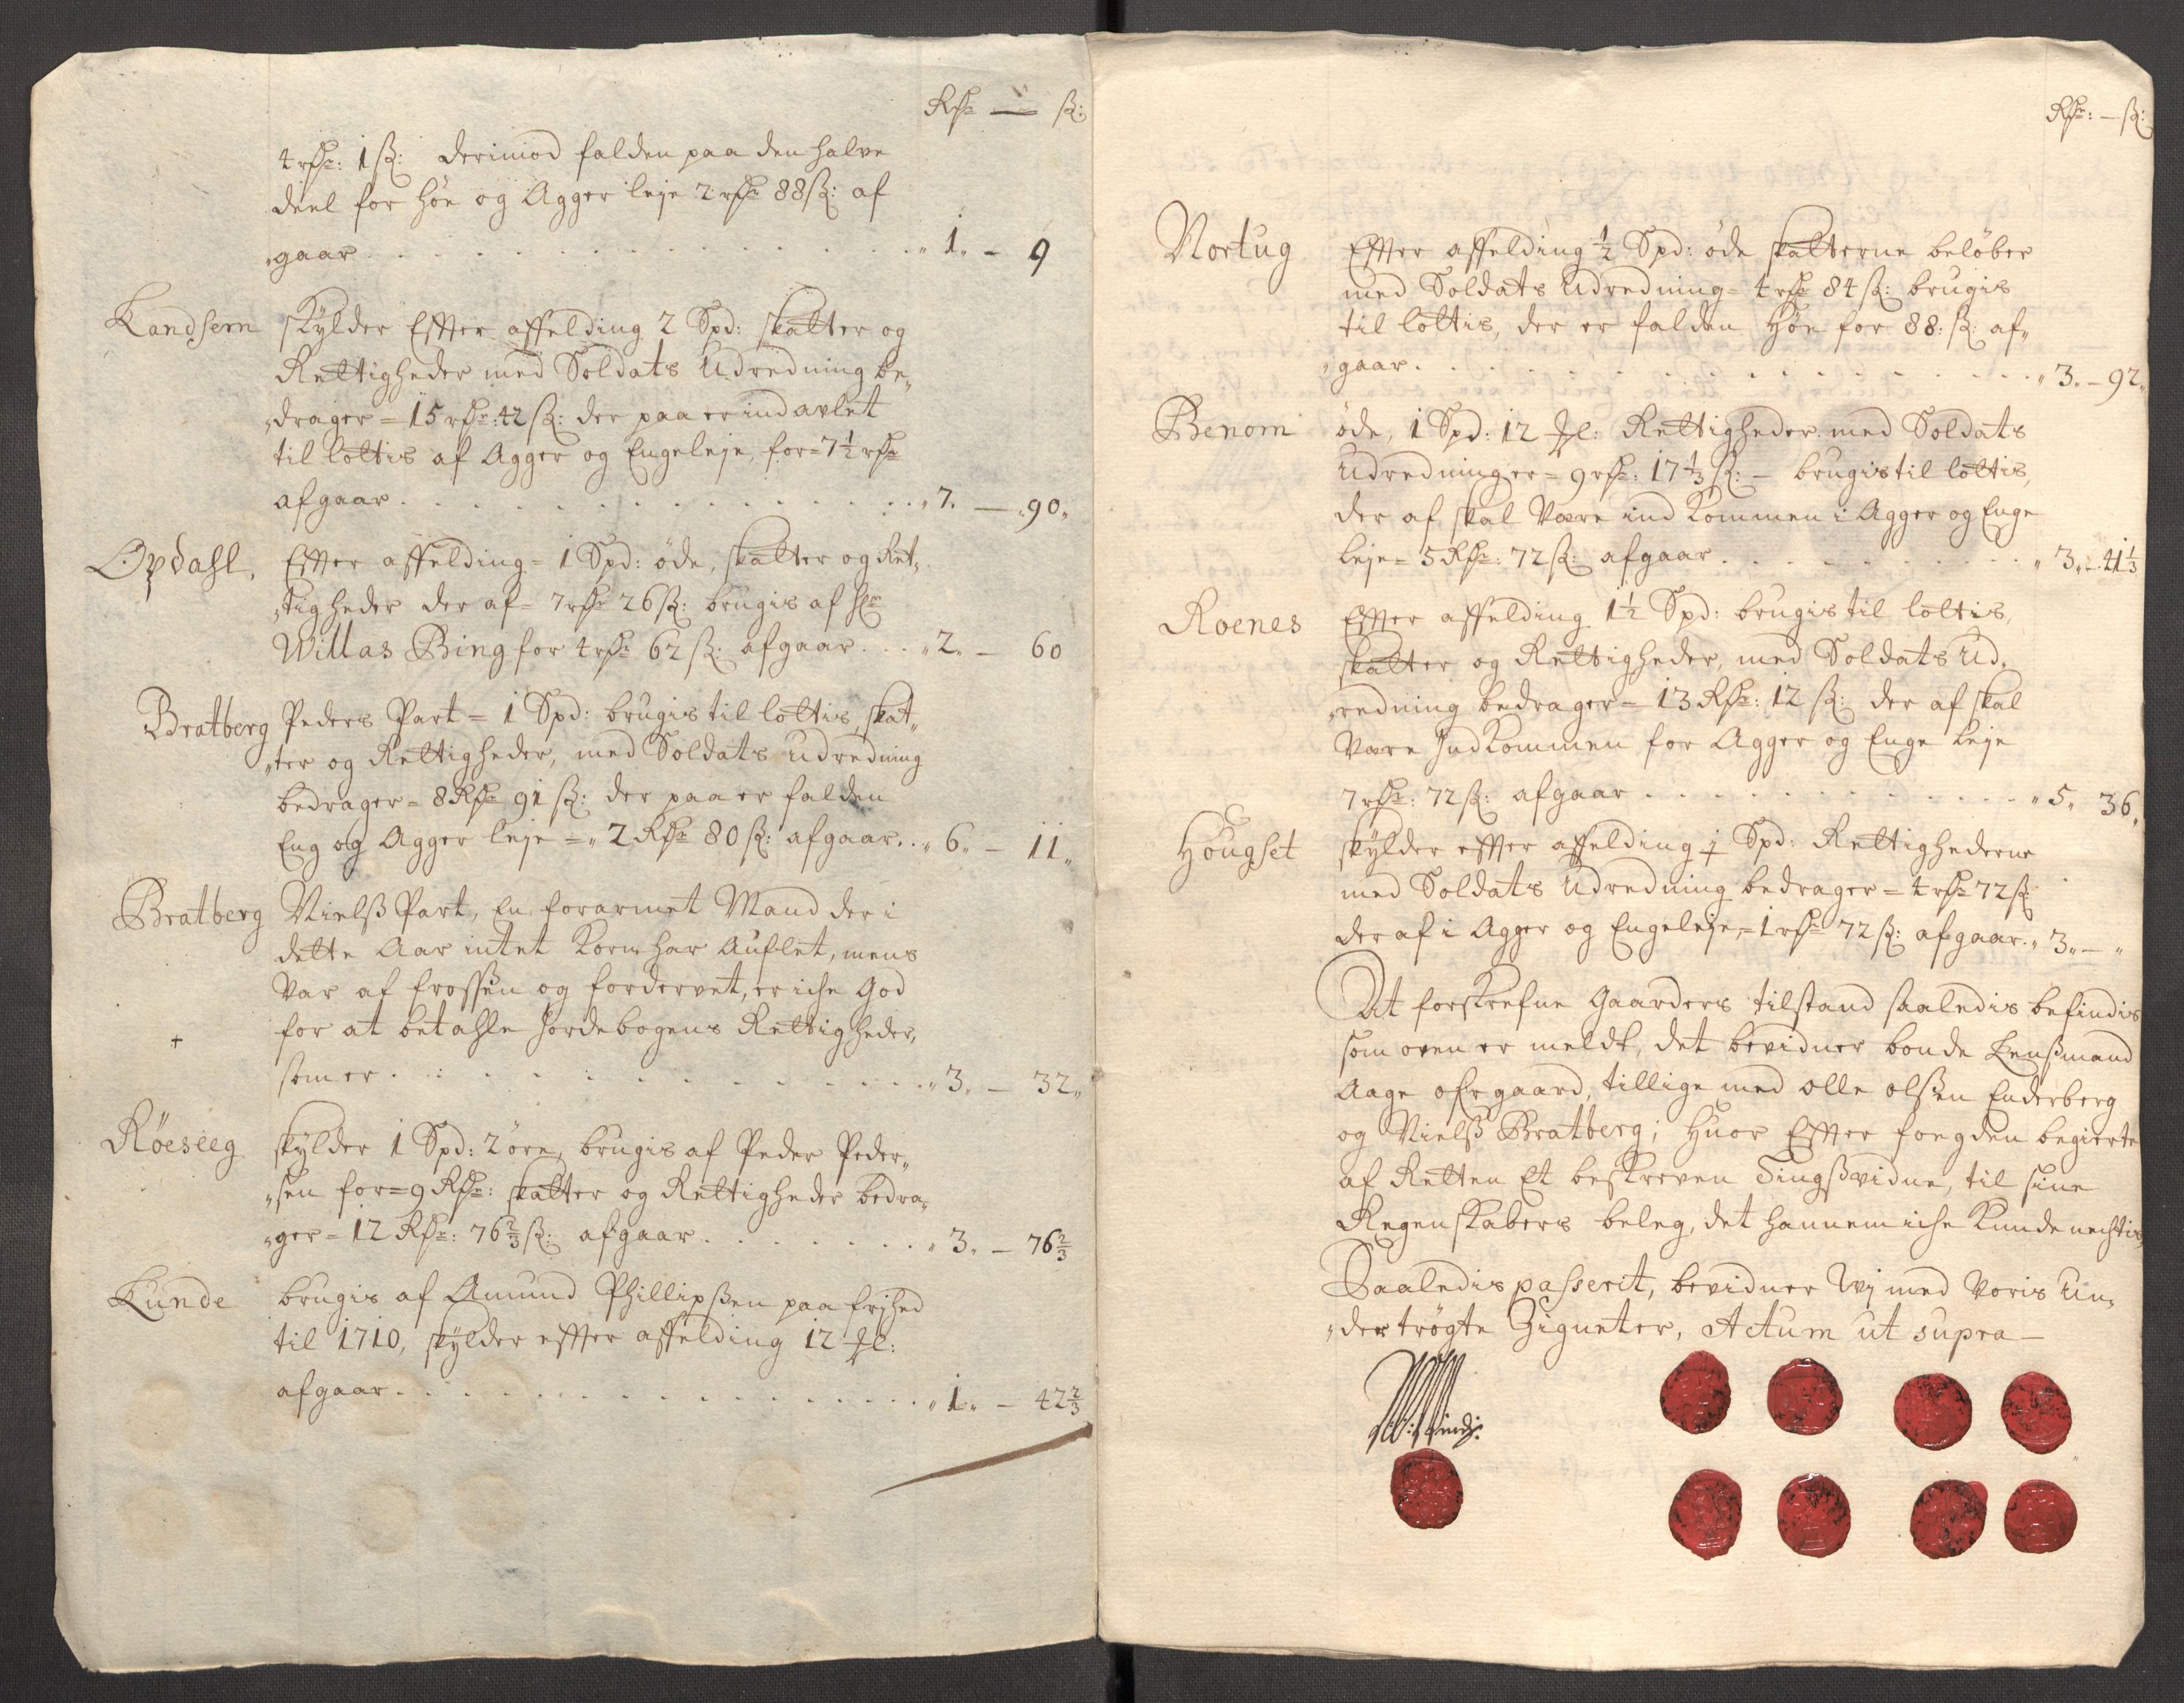 Rdr — ß:
4 rdr: 1 ß: derimod falden paa den halve
deel for Höe og Agger leje 2 rdr 88 ß: af
gaar . . . . . . . . . . „ 1. - 9
Landsem skylder Effter affelding 2 Spd: skatter og
Rettigheder med Soldats Udredning be„
„drager = 15 rdr: 42 ß: der paa er ind avlet
til lottis af Agger og Engeleje, for = 7 1/2 rdr
afgaar . . . . . . . . . . „ 7. — „90„
Opdahl, Effter affelding = 1 Spd: øde, skatter og Ret„
„tigheder der af = 7 rdr 26 ß: brugis af Hr
Willas Bing for 4 rdr 62 ß: afgaar . . . „ 2. - 60
Bratberg Peders Part = 1 Spd: brugis til lottis, skat„
„ter og Rettigheder, med Soldats udredning
bedrager = 8 Rdr 91 ß: der paa er falden
Eng og Agger leje = „ 2 Rdr 80 ß: afgaar . . „ 6. - 11„
Bratberg Nielß Part, En forarmet Mand der i
dette Aar intet Korn har Auflet, mens
Var af frossen og fordervet, er iche God
for at betahle Jordebogens Rettigheder,
+
som er . . . . . . . . . . „ 3. - 32„
Röeseeg skylder 1 Spd: 2 øre, brugis af Peder Peder„
„sen for = 9 Rdr: skatter og Rettigheder bedra„
„ger = 12 Rdr: 76 2/3 ß: afgaar . . . . . . . „ 3. - 76 2/3
Lunde brugis af Amund Phillipßen paa frjhed
til 1710, skylder effter affelding 12 ℔l:
afgaar . . . . . . . . . . „ 1. - 42 2/3
Rdr: - ß:
Nortug Effter affelding 1/2 Spd: øde skatterne beløber
med Soldats Udredning = 4 rdr 84 ß: brugis
til lottis, der er falden Höe for 88: ß: af„
„gaar . . . . . . . . . . „ 3. - 92„
Benom øde, 1 Spd: 12 ℔l: Rettigheder med Soldats
Udredninger = 9 rdr: 17 1/3 ß: - brugis til lottis,
der af skal Være ind Kommen i Agger og Enge
leje = 5 Rdr: 72 ß: afgaar . . . . . . . „ 3. - 41 1/3
Roenes Effter affelding 1 1/2 Spd: brugis til lottis,
skatter og Rettigheder, med Soldats Ud„
„redning bedrager = 13 Rdr: 12 ß: der af skal
Være Ind Kommen for Agger og Enge Leje
7 rdr: 72 ß: afgaar . . . . . . . . . „ 5„ 36„
Hougset skylder effter affelding 1 Spd: Rettighederne
med Soldats Udredning bedrager = 4 rdr 72 ß
der af i Agger og Engeleje, = 1 rdr 72 ß: afgaar. „ 3„ - „
At forskrefne Gaarders tilstand saaledis befindis
som oven er meldt, det bevidner bonde Lenßmand
Aage ofrgaard, tillige med olle olßen Enderberg
og Nielß Bratberg; Huor Effter fogden begierte
af Retten Et beskreven Tingßvidne, til sine
Regenskabers beleg, det hannem iche Kunde nechtis,
Saaledis passerit, bevidner Wj med Voris Un„
„dertrøgte Zigneter, Actum ut supra —